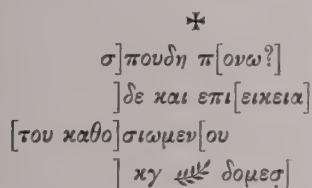 ✠
σ]πουδη π[ονω?]
]δε και επι[εικεια]
[του καθο]σιωμεν[ου
] κγ δομεσ̣[